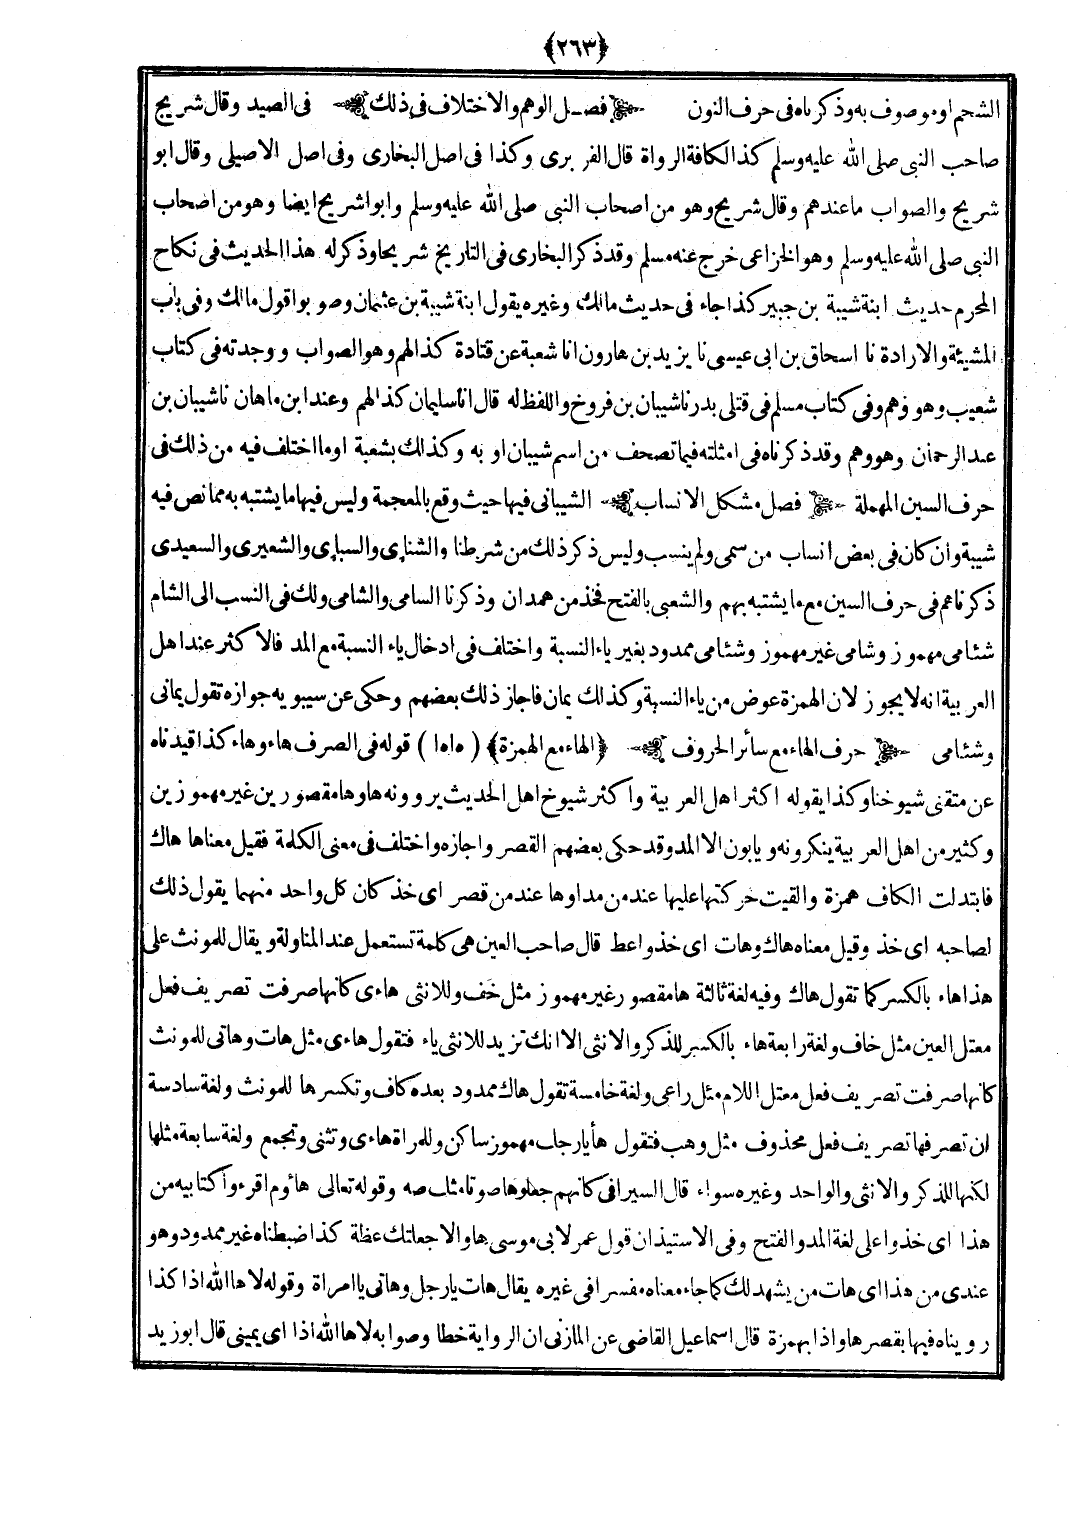 ﴿٢٦٣﴾
الشحم او موصوف به وذكرناه في حرف النون فصـل الوهم والاختلاف في ذلك في الصيد وقال شريح
صاحب النبي صلى الله عليه وسلم كذا لكافة الرواة قال الفربرى وكذا في اصل البخارى وفي اصل الاصيلي وقال ابو
شريح والصواب ما عندهم وقال شريح وهو من اصحاب النبي صلى الله عليه وسلم وابوا شريح ايضا وهو من اصحاب
النبي صلى الله عليه وسلم وهو الخزاعي خرج عنه مسلم وقد ذكر البخارى في التاريخ شريحا وذكر له هذا الحديث في نكاح
المحرم حديث ابنة شيبة بن جبير كذا جاء في حديث مالك وغيره يقول ابنة شيبة بن عثمان وصوبوا قول مالك وفي باب
المشيئة والارادة نا اسحاق بن ابي عيسى نا يزيد بن هارون انا شعبة عن قتادة كذا لهم وهو الصواب ووجدته في كتاب
شعيب وهو وهم وفي كتاب مسلم في قتلى بدر نا شيبان بن فروخ واللفظ له قال انا سليمان كذا لهم وعند ابن ماهان نا شيبان بن
عبد الرحمان وهو وهم وقد ذكرناه في امثلته فيما تصحف من اسم شيبان او به وكذلك بشعبة او ما اختلف فيه من ذلك في
حرف السين المهملة فصل مشكل الانساب الشيباني فيها حيث وقع بالمعجمة وليس فيها ما يشتبه به مما نص فيه
شيبة وان كان في بعض انساب من سمى ولم ينسب وليس ذكر ذلك من شرطنا والشنائي والسبائي والشعيرى والسعيدى
ذكرناهم في حرف السين مع ما يشتبه بهم والشعبي بالفتح فخذ من همدان وذكرنا السامى والشامى ولك في النسب الى الشام
شئامى مهموز وشامى غير مهموز وشئامى ممدود بغير ياء النسبة واختلف في ادخال ياء النسبة مع المد فالاكثر عند اهل
العربية انه لا يجوز لان الهمزة عوض من ياء النسبة وكذلك يمان فاجاز ذلك بعضهم وحكى عن سيبويه جوازه تقول يمانى
وشئامى حرف الهاء مع سائر الحروف ﴿الهاء مع الهمزة﴾ ( ه ا ه ا ) قوله في الصرف هاء وهاء كذا قيدناه
عن متقنى شيوخنا وكذا يقوله اكثر اهل العربية واكثر شيوخ اهل الحديث يروونه ها وها مقصورين غير مهموزين
وكثير من اهل العربية ينكرونه ويابون الا المد وقد حكى بعضهم القصر واجازه واختلف في معنى الكلمة فقيل معناها هاك
فابتدلت الكاف همزة والقيت حركتها عليها عند من مد اوها عند من قصر اى خذ كان كل واحد منهما يقول ذلك
لصاحبه اى خذ وقيل معناه هاك وهات اى خذ واعط قال صاحب العين هي كلمة تستعمل عند المناولة ويقال للمونث على
هذا هاء بالكسر كما تقول هاك وفيه لغة ثالثة ها مقصور غير مهموز مثل خف وللانثى هاءى كانها صرفت تصريف فعل
معتل العين مثل خاف ولغة رابعة هاء بالكسر للذكر والانثى الا انك تزيد للانثى ياء فتقول هاءى مثل هات وهاتى للمونث
كانها صرفت تصريف فعل معتل اللام مثل راعى ولغة خامسة تقول هاك ممدود بعده كاف وتكسرها للمونث ولغة سادسة
ان تصرفها تصريف فعل محذوف مثل وهب فتقول هأ يارجل مهموز ساكن وللمراة هاءى وتثنى وتجمع ولغة سابعة مثلها
لكنها للذكر والانثى والواحد وغيره سواء قال السيرافى كانهم جعلوها صوتا مثل صه وقوله تعالى هاؤم اقرءوا كتابيه من
هذا اى خذوا على لغة المد والفتح وفي الاستيذان قول عمر لابي موسى ها والا جعلتك عظة كذا ضبطناه غير ممدود وهو
عندى من هذا اى هات من يشهد لك كما جاء معناه مفسرا في غيره يقال هات يارجل وهاتى ياامراة وقوله لا ها الله اذا كذا
رويناه فيها بقصر ها واذا بهمزة قال اسماعيل القاضى عن المازنى ان الرواية خطا وصوابه لا ها الله اذا اى يمينى قال ابو زيد